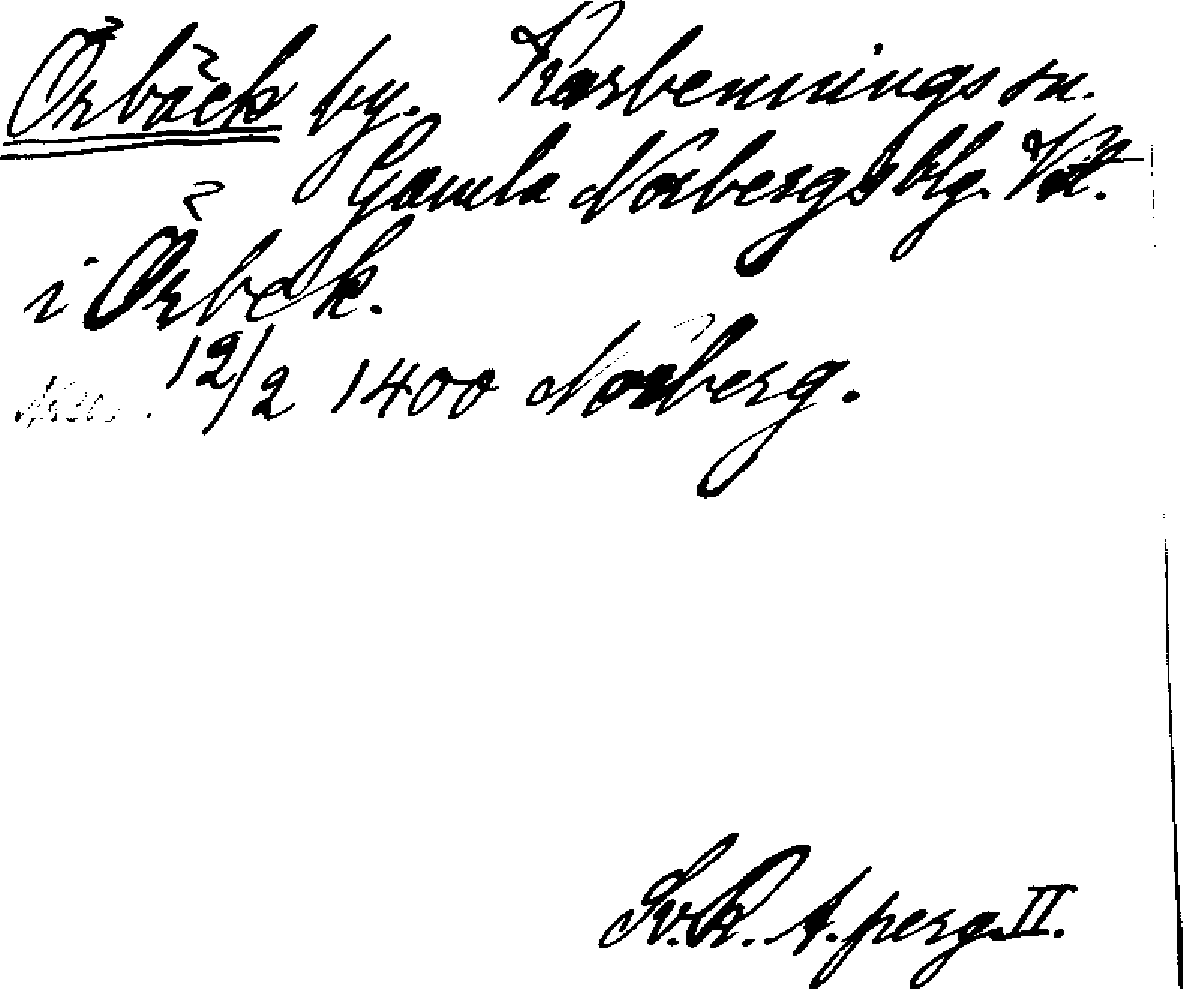 Örbäck by. Karbennings sn.
Gamla Norbergs blg. Vstm.
i Örbek.
12/2 1400 Norberg.
Sv. R. A. perg. II.